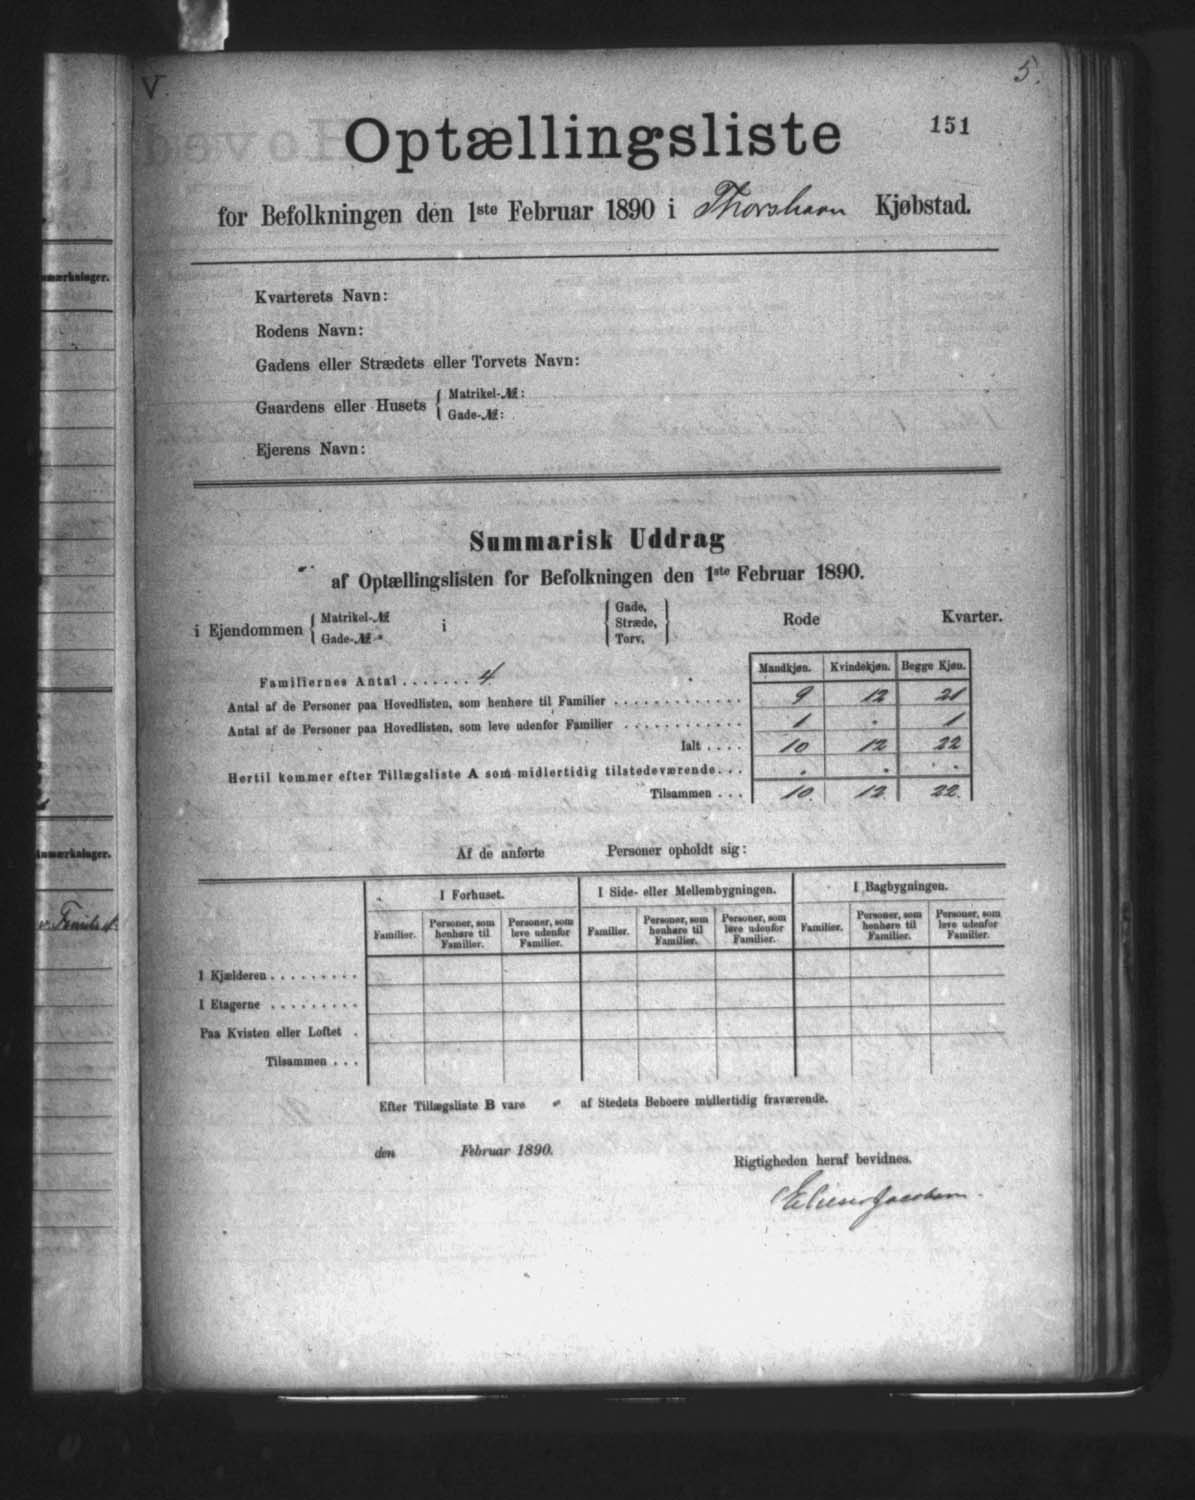 V.
5.
Optællingsliste
151
for Befolkningen den 1ste Februar 1890 i Thorshavn Kjøbstad.
Kvarterets Navn:
Rodens Navn:
Gadens eller Strædets eller Torvets Navn:
Gaardens eller Husets { Matrikel-№:
Gade-№:
Ejerens Navn:
Summarisk Uddrag
af Optællingslisten for Befolkningen den 1ste Februar 1890.
i Ejendommen { Matrikel-№ Gade-№ i { Gade, Stræde, Torv. } Rode Kvarter.
Mandkjøn. Kvindekjøn. Begge Kjøn.
Familiernes Antal . . . . . . . 4
Antal af de Personer paa Hovedlisten, som henhøre til Familier . . . . . . . . . . . . . 9 12 21
Antal af de Personer paa Hovedlisten, som leve udenfor Familier . . . . . . . . . . . . 1 . 1
Ialt . . . . 10 12 22
Hertil kommer efter Tillægsliste A som midlertidig tilstedeværende. . . . . .
Tilsammen . . . 10. 12. 22.
Af de anførte Personer opholdt sig:
I Forhuset. I Side- eller Mellembygningen. I Bagbygningen.
Familier. Personer, som henhøre til Familier. Personer, som leve udenfor Familier. Familier. Personer, som henhøre til Familier. Personer, som leve udenfor Familier. Familier. Personer, som henhøre til Familier. Personer, som leve udenfor Familier.
I Kjælderen . . . . . . . . .
I Etagerne . . . . . . . . .
Paa Kvisten eller Loftet .
Tilsammen . . .
Efter Tillægsliste B vare af Stedets Beboere midlertidig fraværende.
den Februar 1890.
Rigtigheden heraf bevidnes.
Elieser Jacobsen.
mærkninger.
Anmærkninger.